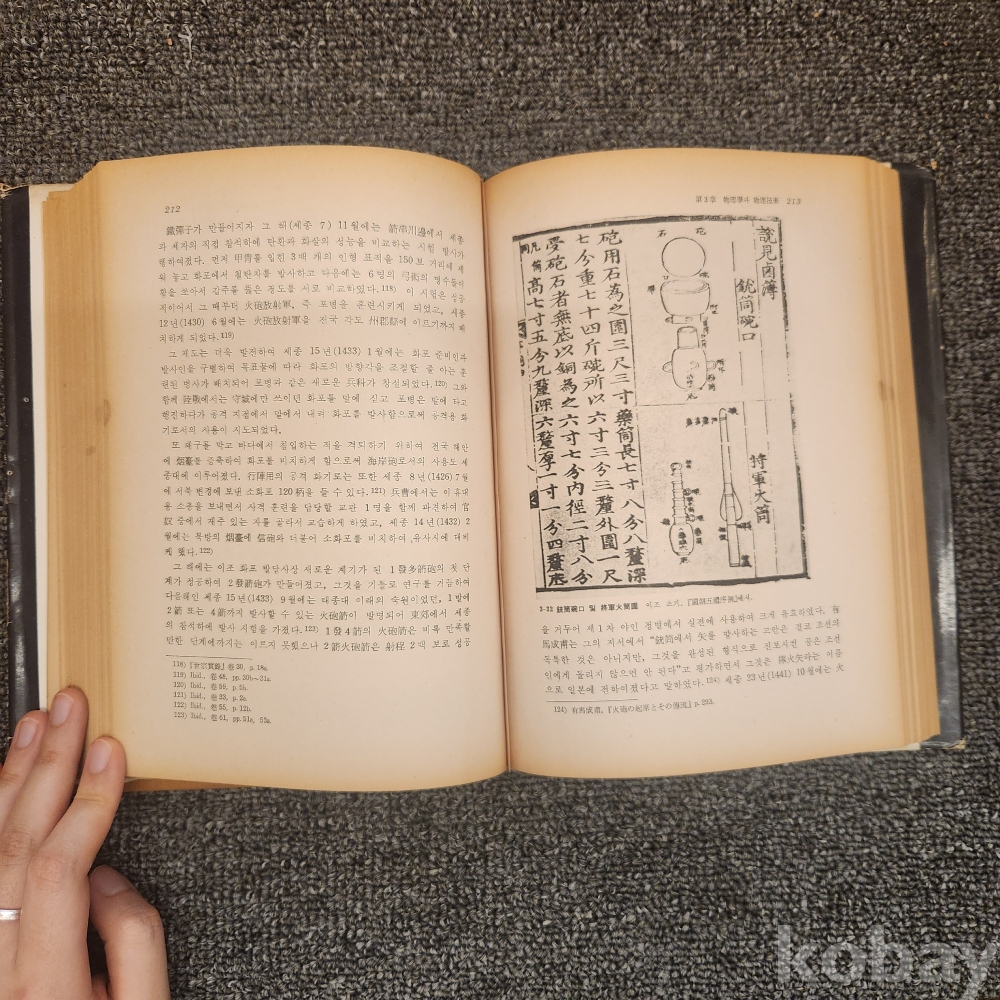 212
鐵彈子가 만들어지자 그 해(세종 7) 11월에는 箭串川邊에서 세종
과 세자의 직접 참석하에 탄환과 화살의 성능을 비교하는 시험 발사가
행하여졌다. 먼저 甲冑를 입힌 3백 개의 인형 표적을 150보 거리에 세
워 놓고 화포에서 철탄자를 발사하고 다음에는 6명의 弓術의 명수들이
활을 쏘아서 갑주를 뚫은 정도를 서로 비교하였다.118) 이 시험은 성공
적이어서 그 때부터 火砲放射軍, 즉 포병을 훈련시키게 되었고, 세종
12년(1430) 6월에는 火砲放射軍을 전국 각도 州郡縣에 이르기까지 배
치하게 되었다.119)
그 제도는 더욱 발전하여 세종 15년(1433) 1월에는 화포 준비인과
발사인을 구별하여 목표물에 따라 화포의 방향각을 조절할 줄 아는 훈
련된 병사가 배치되어 포병과 같은 새로운 兵科가 창설되었다.120) 그와
함께 陸戰에서는 守城에만 쓰이던 화포를 말에 싣고 포병은 말에 타고
행진하다가 공격 지점에서 말에서 내려 화포를 발사함으로써 공격용 화
기로서의 사용이 시도되었다.
또 왜구를 막고 바다에서 침입하는 적을 격퇴하기 위하여 전국 해안
에 烟臺를 증축하여 화포를 비치하게 함으로써 海岸砲로서의 사용도 세
종대에 이루어졌다. 行陣用의 공격 화기로는 또한 세종 8년(1426) 7월
에 서북 변경에 보낸 소화포 120柄을 들 수 있다.121) 兵曹에서는 이 휴대
용 소총을 보내면서 사격 훈련을 담당할 교관 1명을 함께 파견하여 官
奴 중에서 재주 있는 자를 골라서 교습하게 하였고, 세종 14년(1432) 2
월에는 북방의 烟臺에 信砲와 더불어 소화포를 비치하여 유사시에 대비
케 했다.122)
그 해에는 이조 화포 발달사상 새로운 계기가 된 1發多箭砲의 첫 단
계가 성공하여 2發箭砲가 만들어졌고, 그것을 기틀로 연구를 거듭하여
다음해인 세종 15년(1433) 9월에는 태종대 이래의 숙원이었던, 1발에
2箭 또는 4箭까지 발사할 수 있는 火砲箭이 발명되어 東郊에서 세종
의 참석하에 발사 시험을 가졌다.123) 1發4箭의 火砲箭은 비록 만족할
만한 단계에까지는 이르지 못했으나 2箭火砲箭은 射程 2백 보로 성공
118) 『世宗實錄』 卷 30, p. 18a.
119) Ibid., 卷 48, pp. 30b~31a.
120) Ibid., 卷 59, p. 5b.
121) Ibid., 卷 33, p. 2a.
122) Ibid., 卷 55, p. 12b.
123) Ibid., 卷 61, pp. 51a, 53a.
第3章 物理學과 物理技術 213
說見鹵簿
銃筒碗口
將軍火筒
砲用石爲之圍三尺三寸藥筒長七寸八分八釐深
七分重七十四斤碗所以六寸三分三釐外圍一尺
受砲石者無底以銅爲之六寸七分內徑二寸八分
凡筒高七寸五分九釐深六釐厚一寸一分四釐底
3-22 銃筒碗口 및 將軍火筒圖 이조 초기. 『國朝五禮序例』에서.
을 거두어 제1차 야인 정벌에서 실전에 사용하여 크게 유효하였다. 有
馬成甫는 그의 저서에서 "銃筒에서 矢를 발사하는 고안은 결코 조선의
독특한 것은 아니지만, 그것을 완성된 형식으로 진보시켜 공은 조선
인에게 돌리지 않으면 안 된다"고 평가하면서 그것은 棒火矢라는 이름
으로 일본에 전하여졌다고 말하였다.124) 세종 23년(1441) 10월에는 火
124) 有馬成甫, 『火砲の起原とその傳流』 p. 293.
kobay